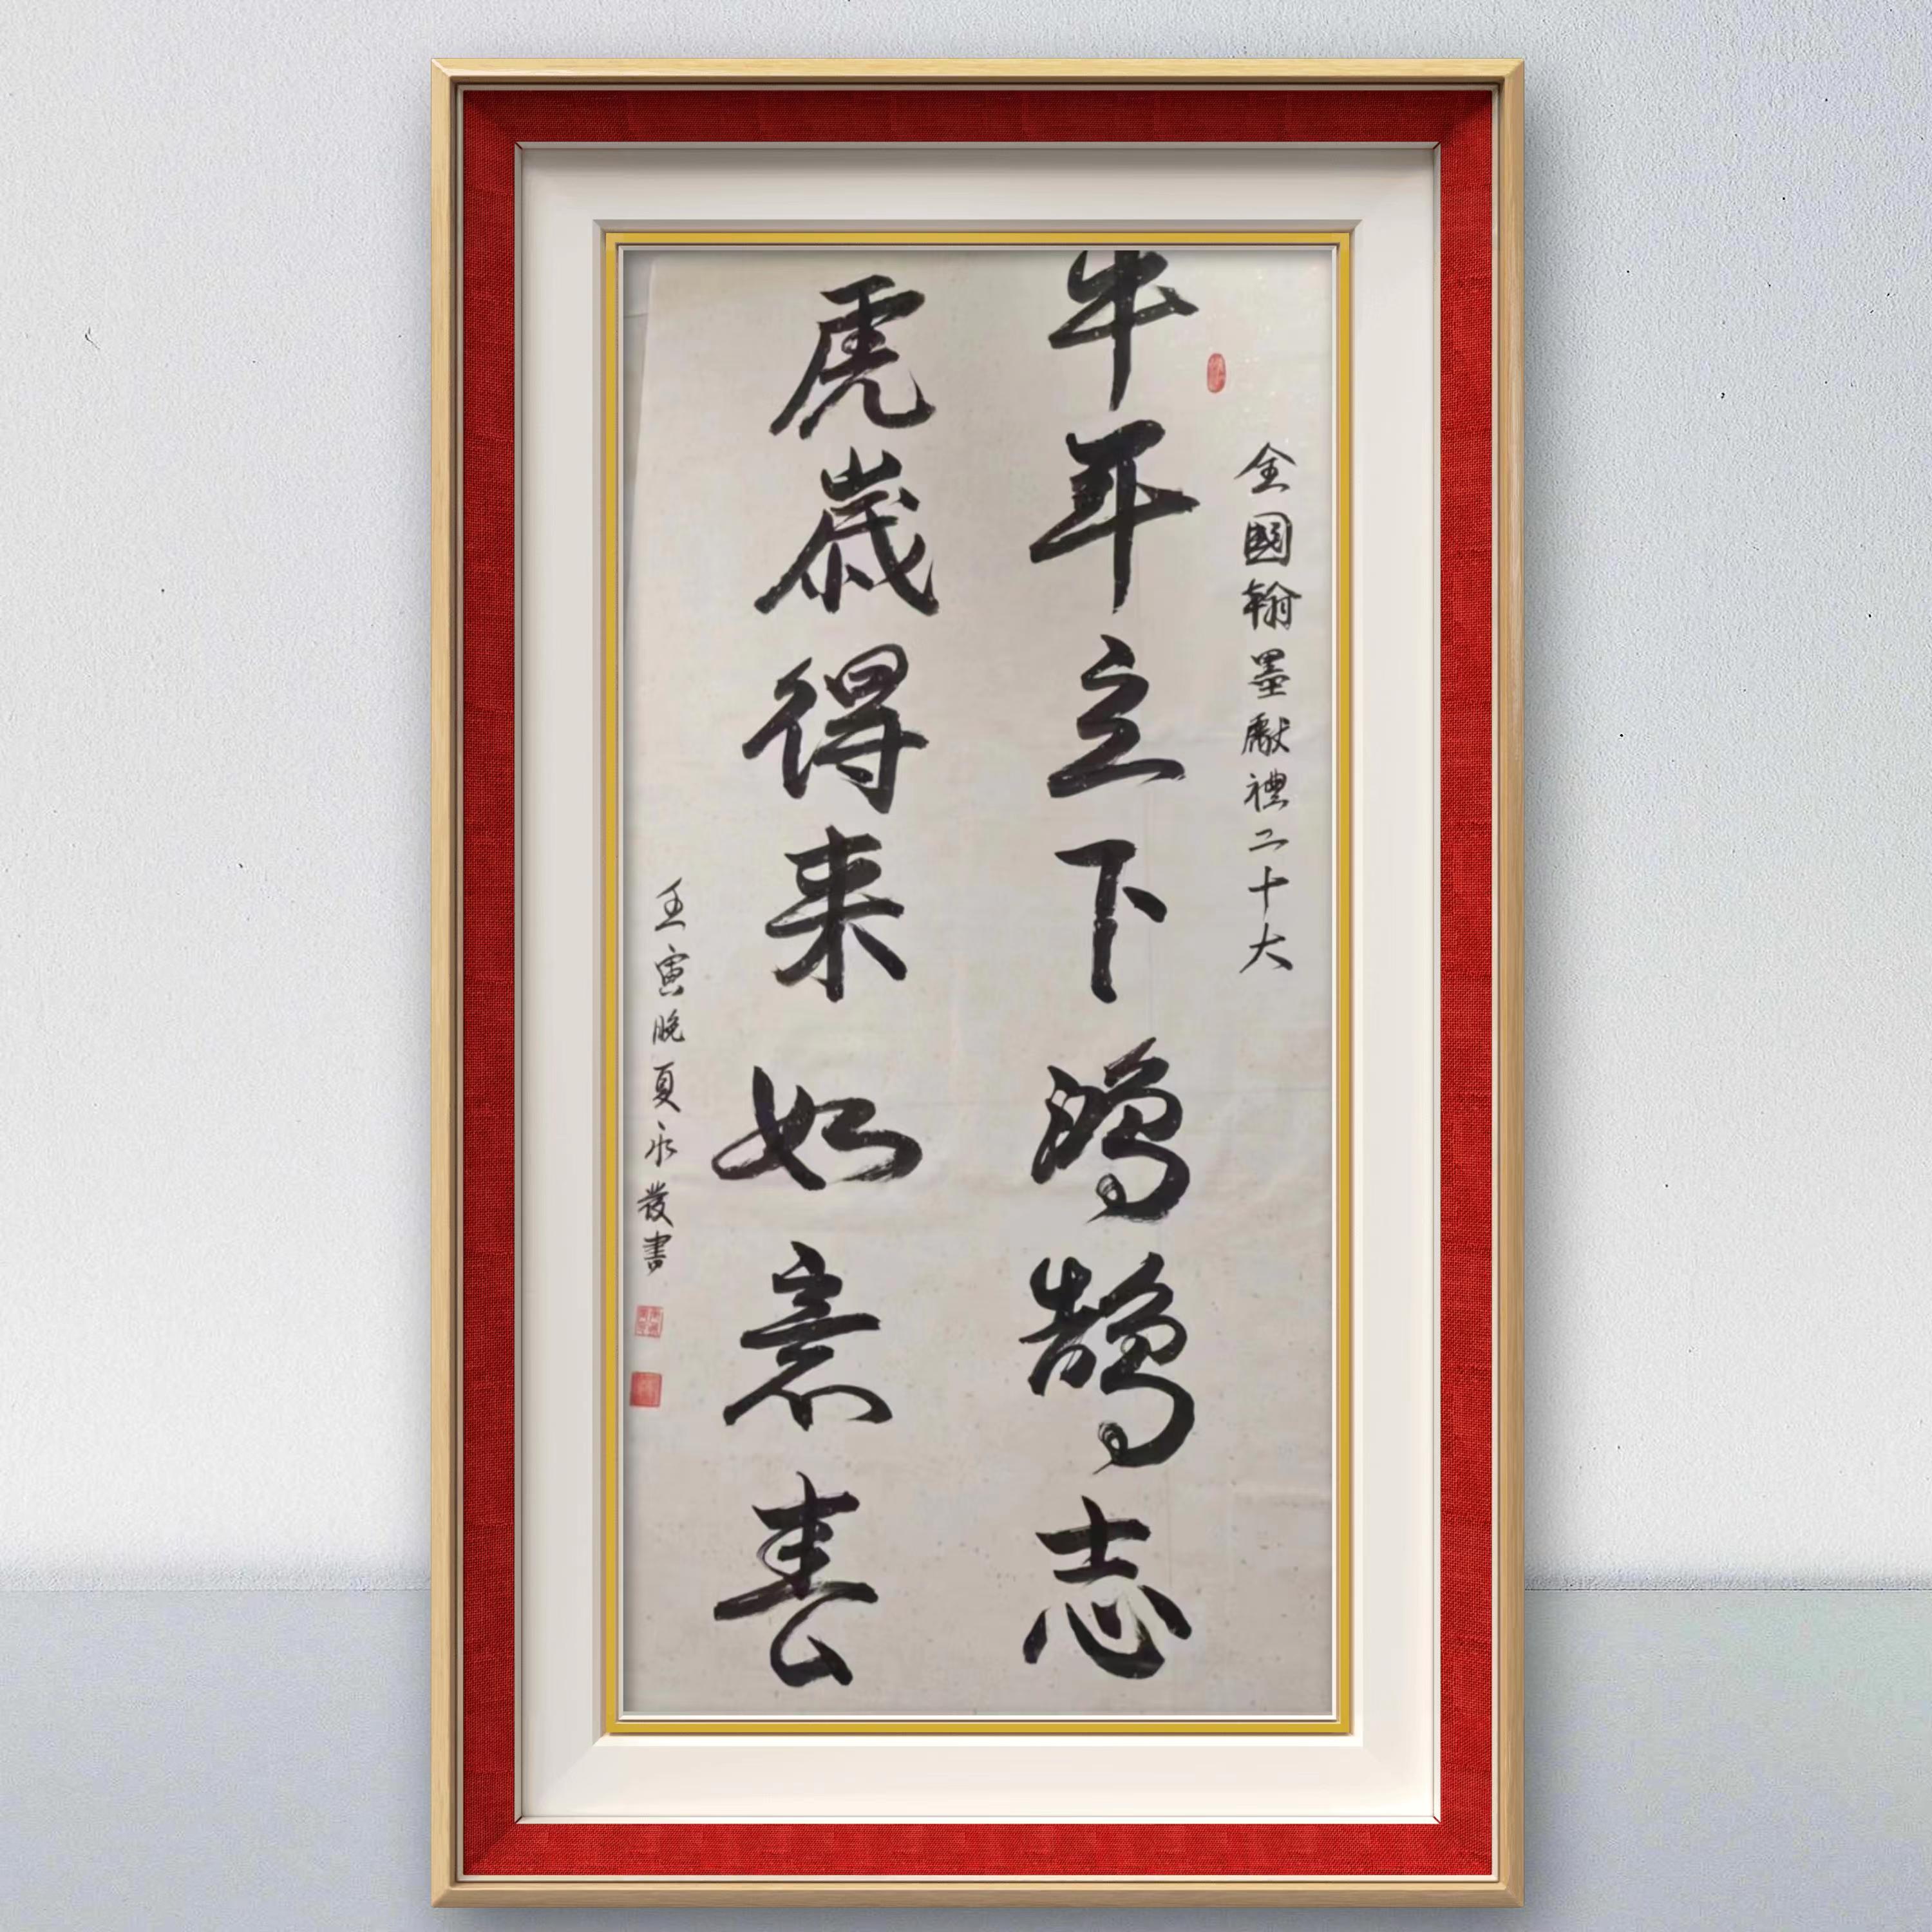 全國翰墨獻禮二十大
牛年立下鸿鹄志
虎歲得来如意春
壬寅晚夏永發書